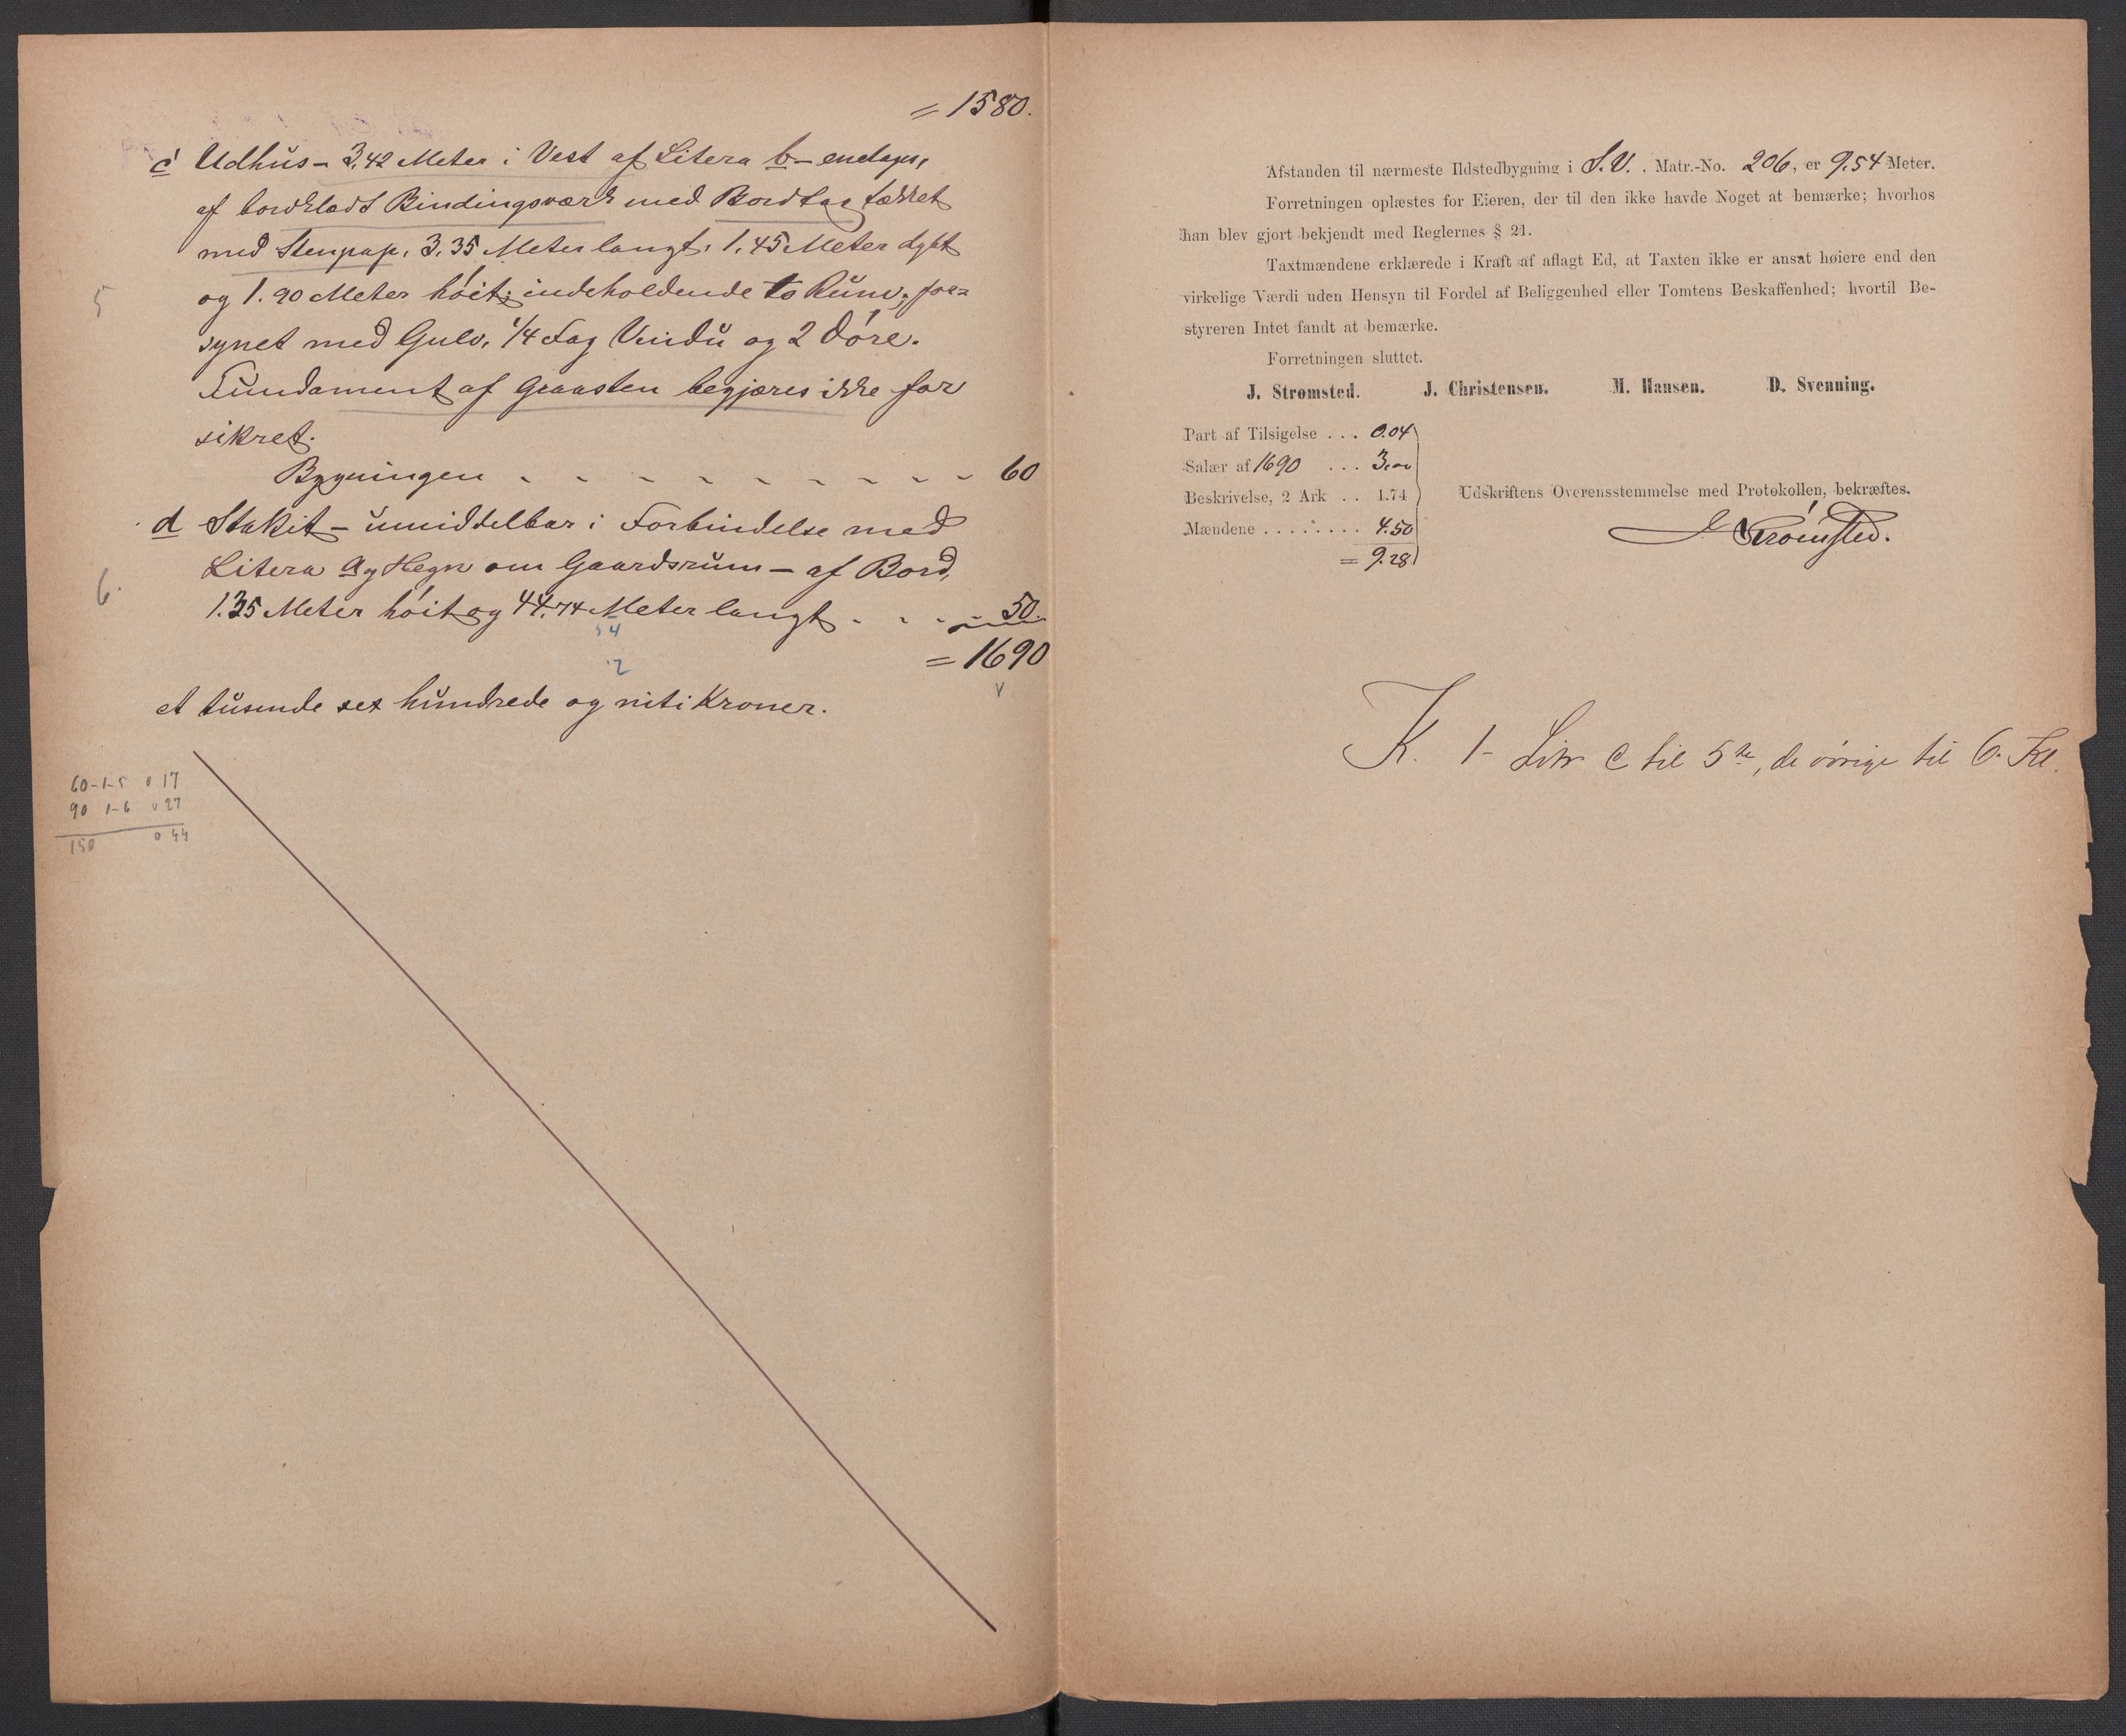 = 1580.
c Udhus – 3,42 Meter i Vest af Litera b – enetages,
af bordklædt Bindingsværk med Bordtag tækket
med Stenpap, 3,35 Meter langt, 1,45 Meter dybt
5
og 1.90 Meter høit; indeholdende to Rum, for=
synet med Gulv, 1/4 Fag Vindu og 2 Døre.
Fundament af Graasten begjæres ikke for
sikret.
Bygningen - - - - - - - - - 60
d Stakit – umiddelbar i Forbindelse med
Litera a og Hegn om Gaardsrum – af Bord,
6.
1.35 Meter høit og 44.74 Meter langt - - - 50.
54
2
= 1690
et tusende sex hundrede og niti Kroner.
60-1-5 0 17
90 1-6 0 27
150 0 44
Afstanden til nærmeste Ildstedbygning i S.V. , Matr.-No. 206, er 9.54 Meter.
Forretningen oplæstes for Eieren, der til den ikke havde Noget at bemærke; hvorhos
han blev gjort bekjendt med Reglernes § 21.
Taxtmændene erklærede i Kraft af aflagt Ed, at Taxten ikke er ansat høiere end den
virkelige Værdi uden Hensyn til Fordel af Beliggenhed eller Tomtens Beskaffenhed; hvortil Be-
styreren Intet fandt at bemærke.
Forretningen sluttet.
J. Strømsted. J. Christensen. M. Hansen. D. Svenning.
Part af Tilsigelse . . . 0.04
Salær af 1690 . . . 3.00
Beskrivelse, 2 Ark . . 1.74
Udskriftens Overensstemmelse med Protokollen, bekræftes.
Mændene . . . . . . . 4.50
J Strømsted.
= 9.28
K. 1- Litr c til 5te, de øvrige til 6. Kl.